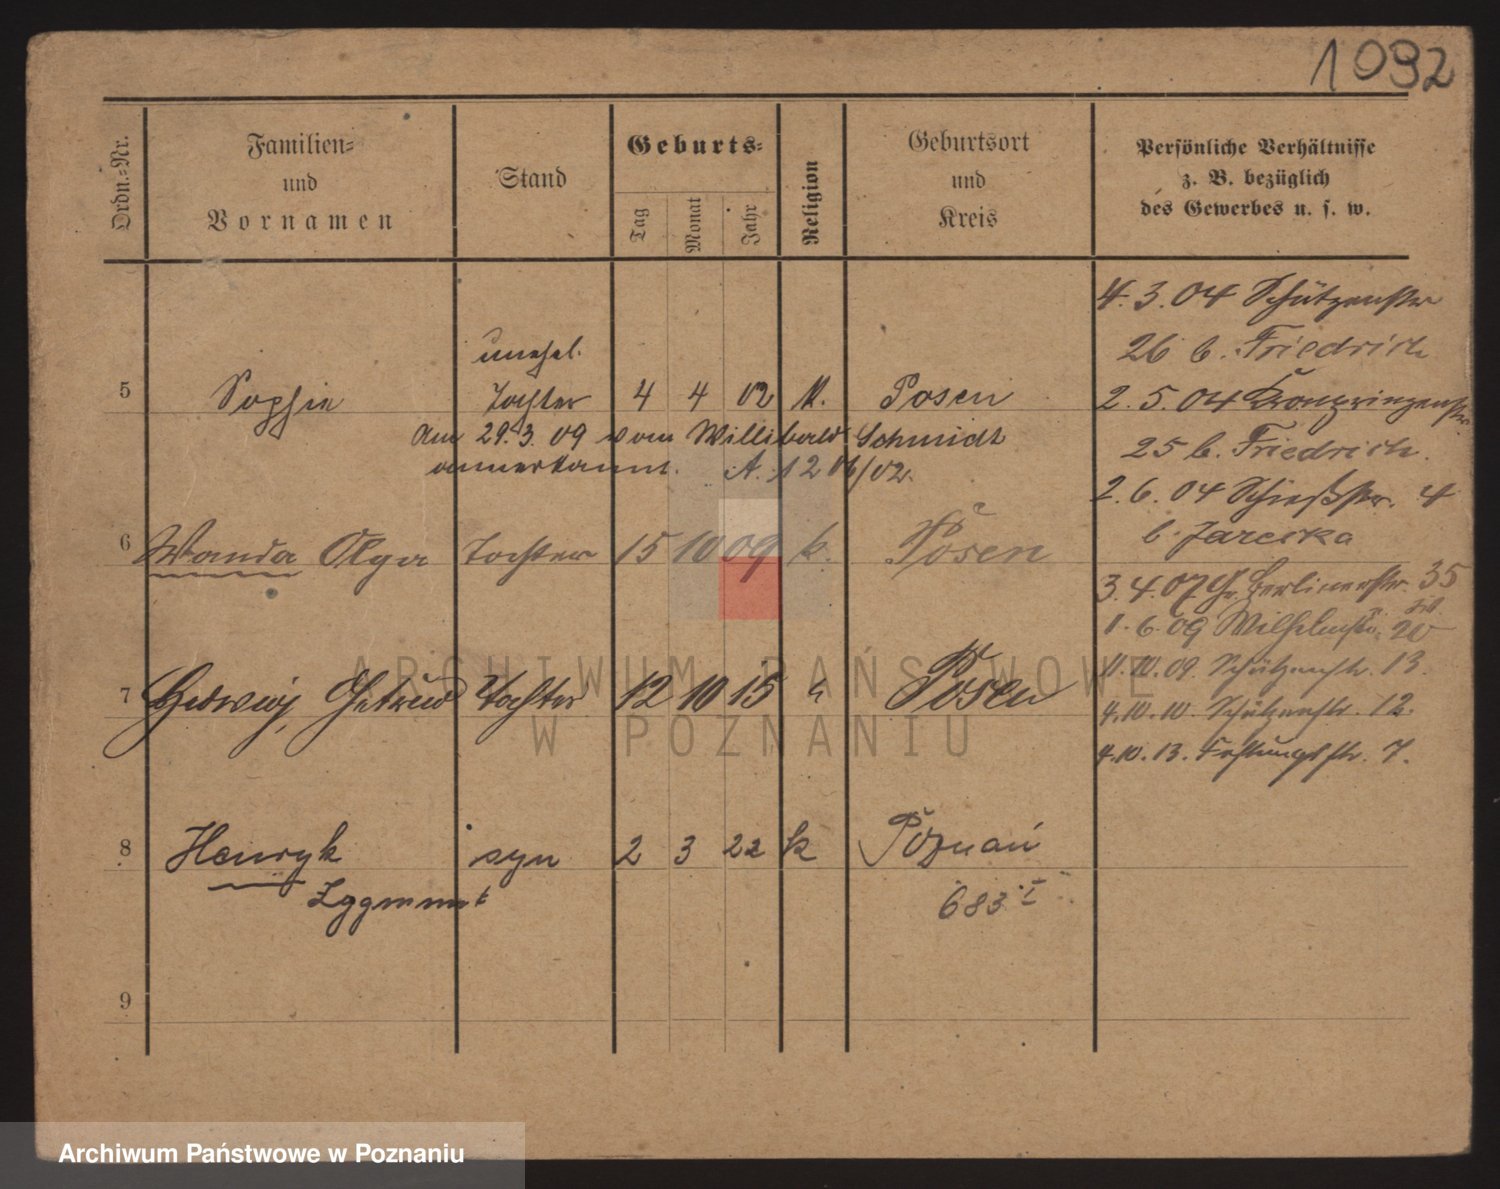 1092
Ordn.-Nr.
Familien-
und
Vornamen
Stand
Geburts-
Tag
Monat
Jahr
Religion
Geburtsort
und
Kreis
Persönliche Verhältnisse
z. B. bezüglich
des Gewerbes u. s. w.
unehel.
5 Sophie Tochter 4 4 02 K. Posen
am 29.3.09 vom Willibald Schmidt
annerkannt. A. 1206/02.
6 Wanda Olga Tochter 15 10 09 k. Posen
7 Hedwig, Gertrud Tochter 12 10 15 k Posen
8 Henryk syn 2 3 22 k Poznań
Zygmunt
683 I
9
4.3.04 Schützenstr
26 b. Friedrich
2.5.04 Kronprinzenstr.
25 b. Friedrich.
2.6.04 Schießstr. 4
b. Jarecka
3.4.07. Gr. Berlinerstr. 35
1.6.09 Wilhelmstr. 20
11.10.09. Schützenstr. 13.
4.10.10. Schützenstr. 12.
4.10.13. Festungsstr. 7.
ARCHIWUM PAŃSTWOWE
W POZNANIU
Archiwum Państwowe w Poznaniu